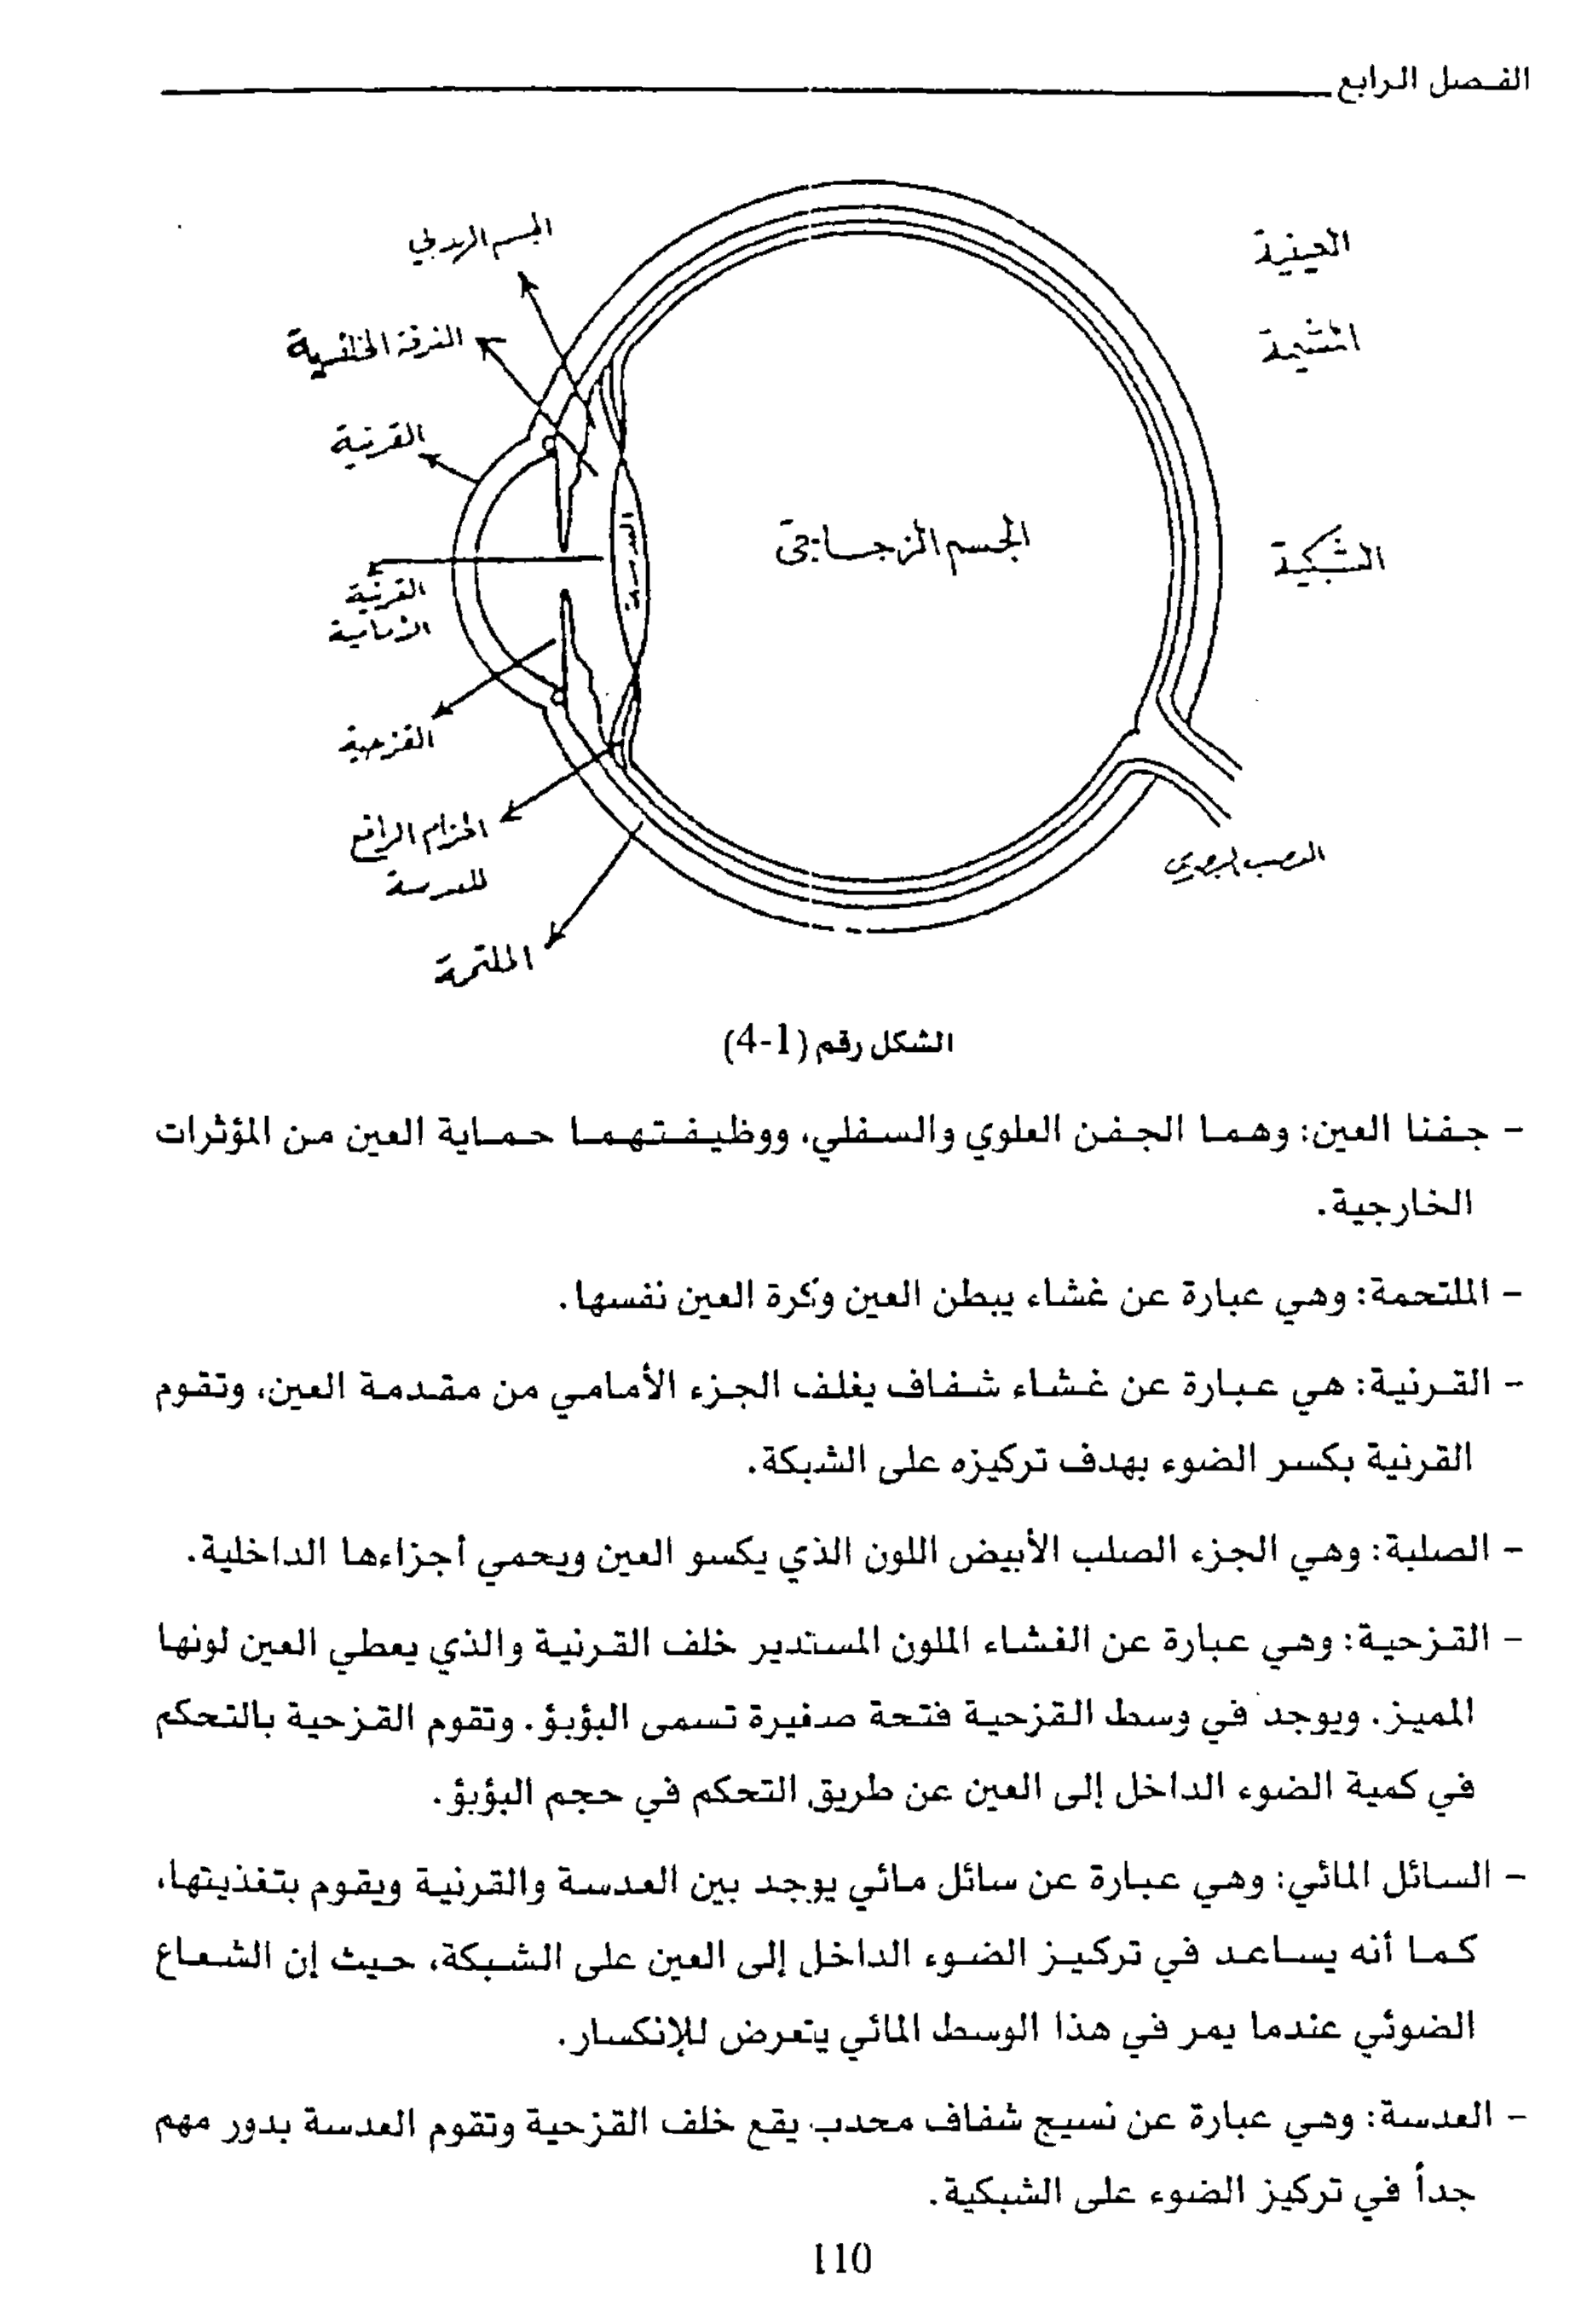 الفصل الرابع
الجسم الهدبي
الغرفة الخلفية
القرنية
القرنية
الأمامية
القزحية
الحزام الرافع
للعدسة
الملتحمة
العدسة
الجسم الزجاجي
العينية
المشيمة
الشبكية
العصب البصري
الشكل رقم (1-4)
- جفنا العين: وهما الجفن العلوي والسفلي، ووظيفتهما حماية العين من المؤثرات
الخارجية.
- الملتحمة: وهي عبارة عن غشاء يبطن العين وكرة العين نفسها.
- القرنية: هي عبارة عن غشاء شفاف يغلف الجزء الأمامي من مقدمة العين، وتقوم
القرنية بكسر الضوء بهدف تركيزه على الشبكة.
- الصلبة: وهي الجزء الصلب الأبيض اللون الذي يكسو العين ويحمي أجزاءها الداخلية.
- القزحية: وهي عبارة عن الغشاء الملون المستدير خلف القرنية والذي يعطي العين لونها
المميز. ويوجد في وسط القزحية فتحة صغيرة تسمى البؤبؤ. وتقوم القزحية بالتحكم
في كمية الضوء الداخل إلى العين عن طريق التحكم في حجم البؤبؤ.
- السائل المائي: وهي عبارة عن سائل مائي يوجد بين العدسة والقرنية ويقوم بتغذيتها،
كما أنه يساعد في تركيز الضوء الداخل إلى العين على الشبكة، حيث إن الشعاع
الضوئي عندما يمر في هذا الوسط المائي يتعرض للإنكسار.
- العدسة: وهي عبارة عن نسيج شفاف محدب يقع خلف القزحية وتقوم العدسة بدور مهم
جداً في تركيز الضوء على الشبكية.
110